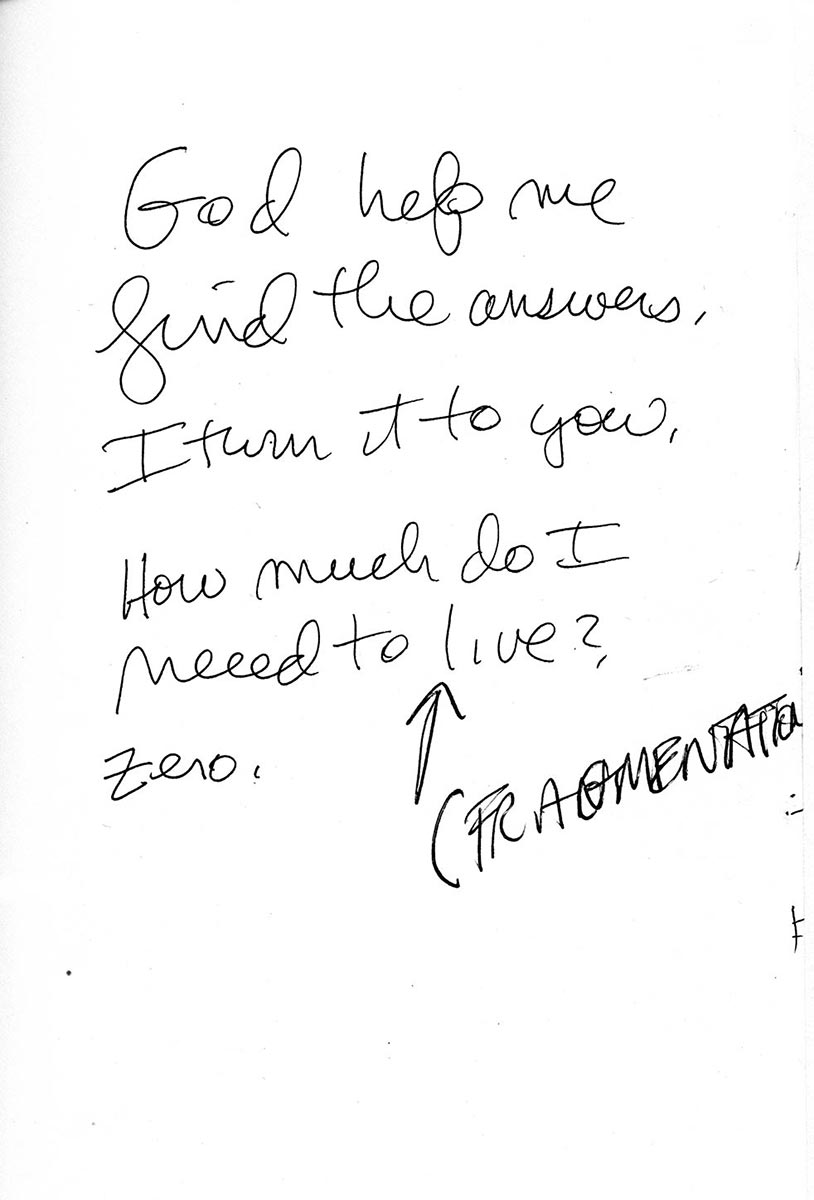 God help me
find the answers.
I turn it to you.
How much do I
need to live?
zero.
(FRAGMENTATIO